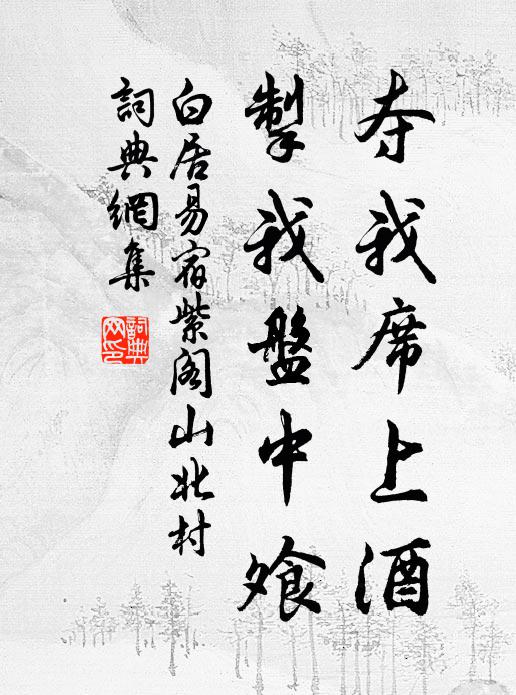 夺我席上酒
掣我盤中飧
白居易宿紫阁山北村
詞典網集
詞典
网印